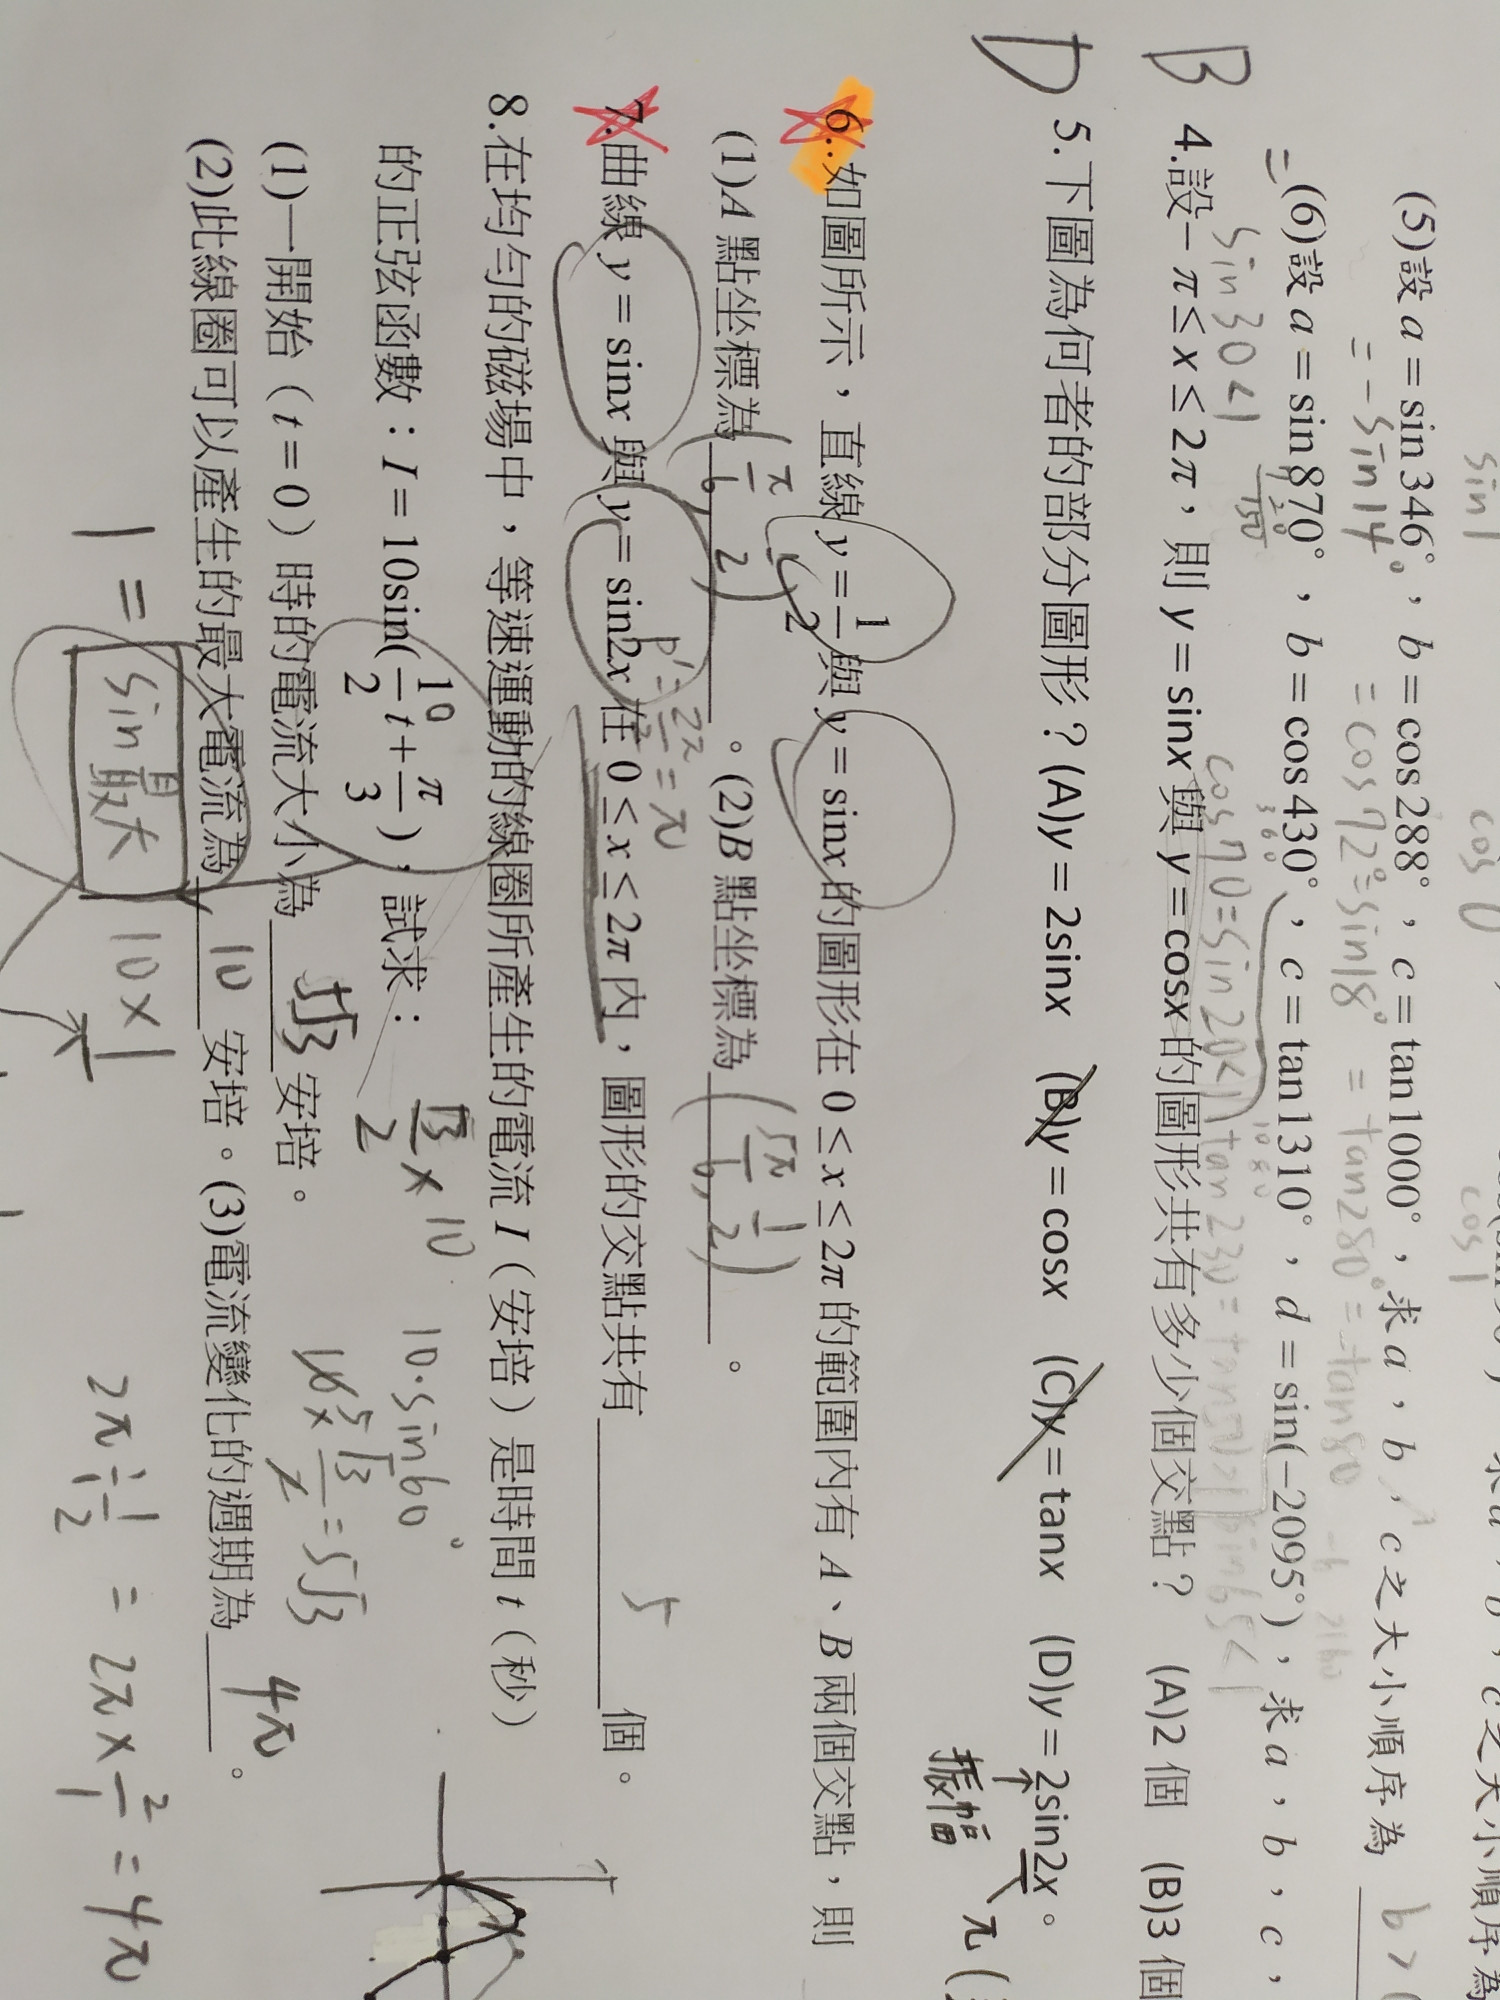 sin1
cos0
cos1
(5)設 a = sin346°, b = cos288°, c = tan1000°, 求 a, b, c 之大小順序為 b >
= -sin14° = cos72° = sin18° = tan280° = -tan80
(6)設 a = sin870°, b = cos430°, c = tan1310°, d = sin(-2095°), 求 a, b, c,
720
150
360
1080
2160
sin30<1 cos70=sin20<1 tan230=
B 4.設 - π ≤ x ≤ 2π, 則 y = sinx 與 y = cosx 的圖形共有多少個交點? (A)2 個 (B)3 個
D 5.下圖為何者的部分圖形?(A)y = 2sinx (B)y = cosx (C)y = tanx (D)y = 2sin2x。
振幅 π
6..如圖所示, 直線 y = 1/2 與 y = sinx 的圖形在 0 ≤ x ≤ 2π 的範圍內有 A、B 兩個交點, 則
(1)A 點坐標為 (π/6, 1/2) 。(2)B 點坐標為 (5π/6, 1/2) 。
p'= 2π/2 = π
7.曲線 y = sinx 與 y = sin2x 在 0 ≤ x ≤ 2π 內, 圖形的交點共有 5 個。
8.在均勻的磁場中, 等速運動的線圈所產生的電流 I(安培)是時間 t(秒)
的正弦函數:I = 10sin(1/2 t + π/3), 試求:
0
√3/2 × 10
10·sin60°
10 × √3/2 = 5√3
5
(1)一開始(t = 0)時的電流大小為 5√3 安培。
(2)此線圈可以產生的最大電流為 10 安培。(3)電流變化的週期為 4π 。
1 = sin最大 10×1
2π ÷ 1/2 = 2π × 2/1 = 4π